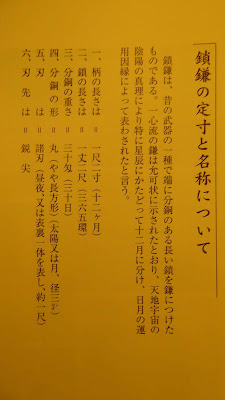 鎖鎌の定寸と名称について
鎖鎌は、昔の武器の一種で端に分銅のある長い鎖を鎌につけた
ものである。一心流の鎌は允可状に示されたとおり、天地宇宙の
陰陽の真理により特に星辰にかたどって十二月に分け、日月の運
用因縁によって表わされたと言う。
一、柄の長さは＝一尺二寸（十二ヶ月）
二、鎖の長さは＝一丈二尺（三六五環）
三、分銅の重さ＝三十匁（三十日）
四、分銅の形＝丸（やや長方形）（太陽又は月、径三㌢）
五、刃は＝諸刃（昼夜、又は表裏一体を表し、約一尺）
六、刃先は＝鋭尖